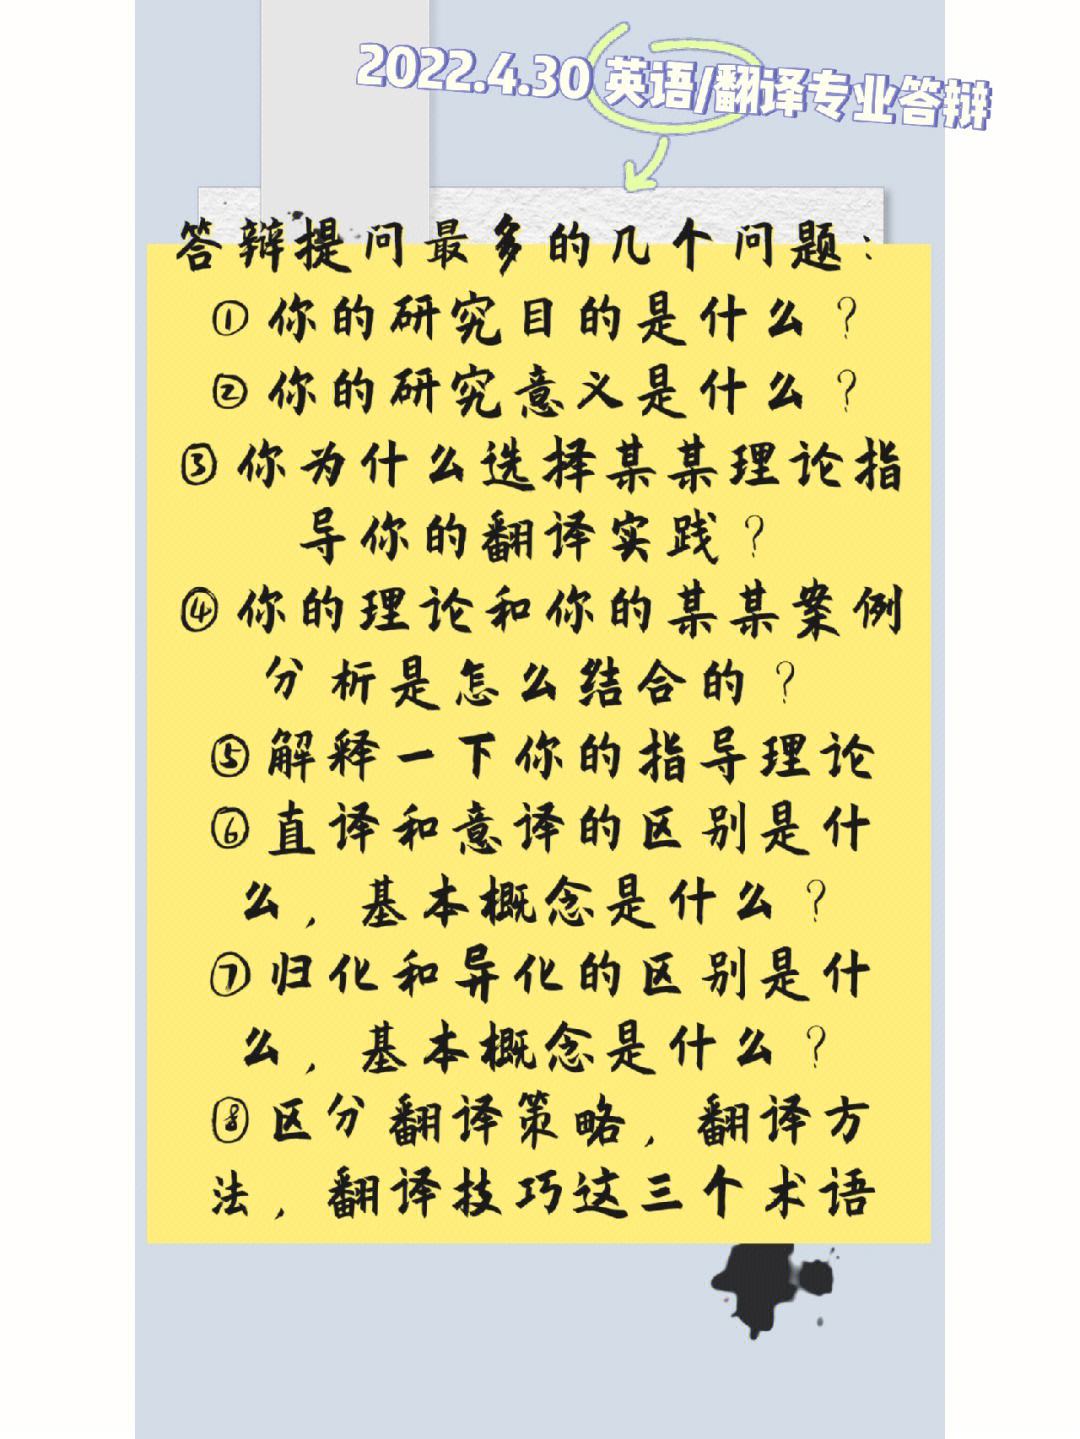 2022.4.30 英语/翻译专业答辩
答辩提问最多的几个问题：
①你的研究目的是什么？
②你的研究意义是什么？
③你为什么选择某某理论指
导你的翻译实践？
④你的理论和你的某某案例
分析是怎么结合的？
⑤解释一下你的指导理论
⑥直译和意译的区别是什
么，基本概念是什么？
⑦归化和异化的区别是什
么，基本概念是什么？
⑧区分翻译策略，翻译方
法，翻译技巧这三个术语